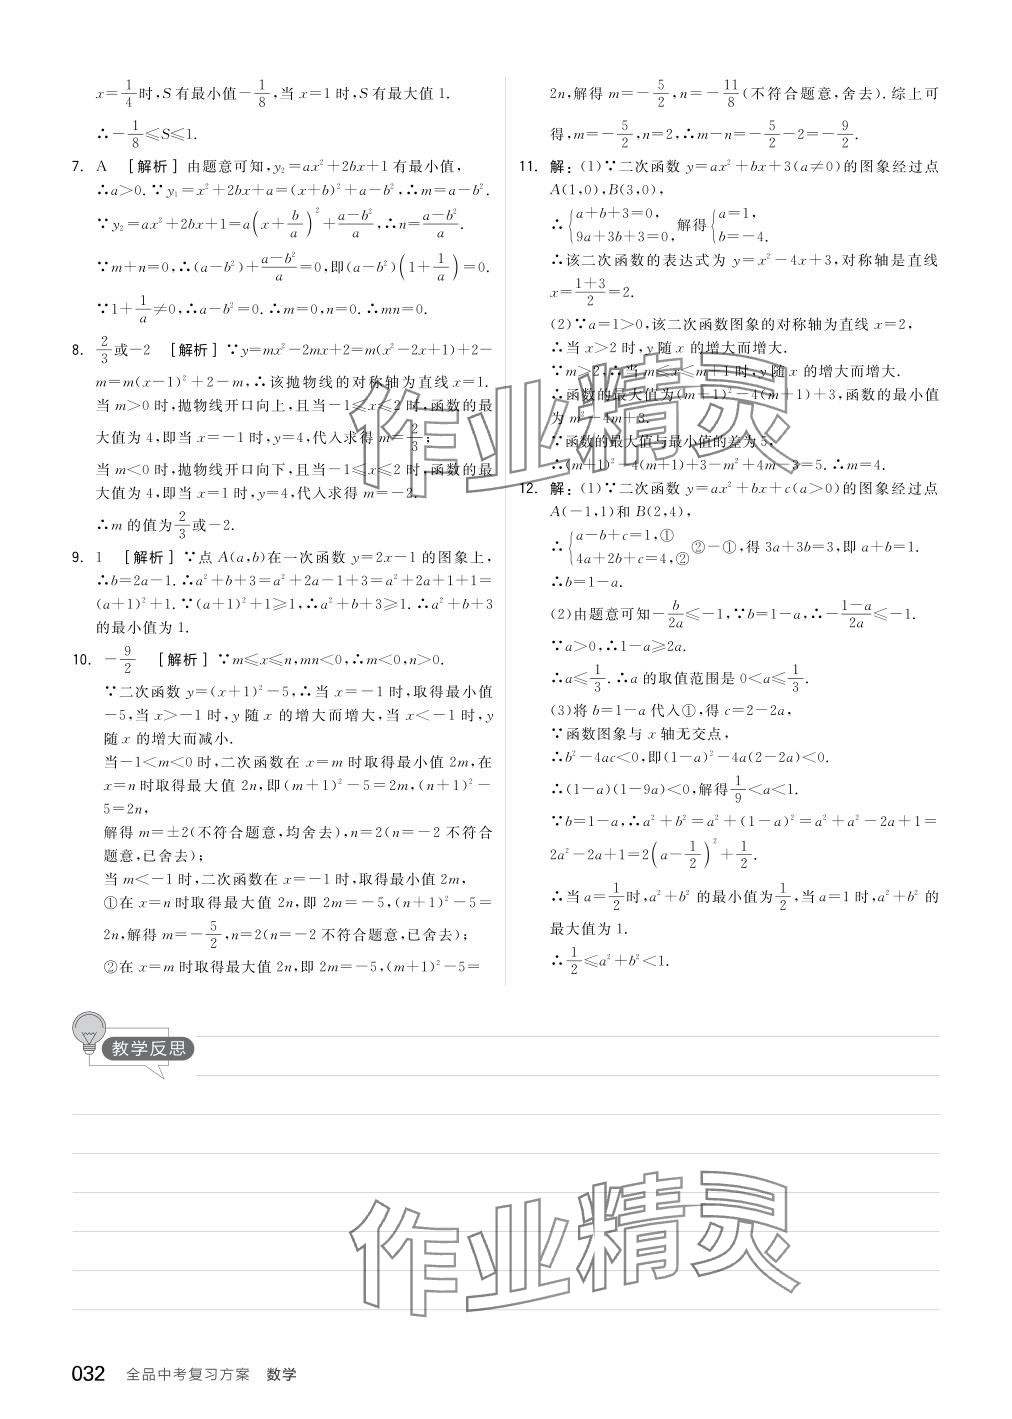 x=1/4时,S有最小值-1/8,当x=1时,S有最大值1.
∴-1/8≤S≤1.
7. A [解析] 由题意可知,y₂=ax²+2bx+1有最小值,
∴a>0.∵y₁=x²+2bx+a=(x+b)²+a-b²,∴m=a-b².
∵y₂=ax²+2bx+1=a(x+b/a)²+(a-b²)/a,∴n=(a-b²)/a.
∵m+n=0,∴(a-b²)+(a-b²)/a=0,即(a-b²)(1+1/a)=0.
∵1+1/a≠0,∴a-b²=0.∴m=0,n=0.∴mn=0.
8. 2/3或-2 [解析] ∵y=mx²-2mx+2=m(x²-2x+1)+2-
m=m(x-1)²+2-m,∴该抛物线的对称轴为直线x=1.
当m>0时,抛物线开口向上,且当-1≤x≤2时,函数的最
大值为4,即当x=-1时,y=4,代入求得m=2/3;
当m<0时,抛物线开口向下,且当-1≤x≤2时,函数的最
大值为4,即当x=1时,y=4,代入求得m=-2.
∴m的值为2/3或-2.
9. 1 [解析] ∵点A(a,b)在一次函数y=2x-1的图象上,
∴b=2a-1.∴a²+b+3=a²+2a-1+3=a²+2a+1+1=
(a+1)²+1.∵(a+1)²+1≥1,∴a²+b+3≥1.∴a²+b+3
的最小值为1.
10. -9/2 [解析] ∵m≤x≤n,mn<0,∴m<0,n>0.
∵二次函数y=(x+1)²-5,∴当x=-1时,取得最小值
-5,当x>-1时,y随x的增大而增大,当x<-1时,y
随x的增大而减小.
当-1<m<0时,二次函数在x=m时取得最小值2m,在
x=n时取得最大值2n,即(m+1)²-5=2m,(n+1)²-
5=2n,
解得m=±2(不符合题意,均舍去),n=2(n=-2不符合
题意,已舍去);
当m<-1时,二次函数在x=-1时,取得最小值2m,
①在x=n时取得最大值2n,即2m=-5,(n+1)²-5=
2n,解得m=-5/2,n=2(n=-2不符合题意,已舍去);
②在x=m时取得最大值2n,即2m=-5,(m+1)²-5=
2n,解得m=-5/2,n=-11/8(不符合题意,舍去).综上可
得,m=-5/2,n=2,∴m-n=-5/2-2=-9/2.
11. 解:(1)∵二次函数y=ax²+bx+3(a≠0)的图象经过点
A(1,0),B(3,0),
∴{a+b+3=0, 9a+3b+3=0,解得{a=1, b=-4.
∴该二次函数的表达式为y=x²-4x+3,对称轴是直线
x=(1+3)/2=2.
(2)∵a=1>0,该二次函数图象的对称轴为直线x=2,
∴当x>2时,y随x的增大而增大.
∵m≥2,∴当m≤x≤m+1时,y随x的增大而增大.
∴函数的最大值为(m+1)²-4(m+1)+3,函数的最小值
为m²-4m+3.
∵函数的最大值与最小值的差为5,
∴(m+1)²-4(m+1)+3-m²+4m-3=5.∴m=4.
12. 解:(1)∵二次函数y=ax²+bx+c(a>0)的图象经过点
A(-1,1)和B(2,4),
∴{a-b+c=1,① 4a+2b+c=4,② ②-①,得3a+3b=3,即a+b=1.
∴b=1-a.
(2)由题意可知-b/2a≤-1,∵b=1-a,∴-(1-a)/2a≤-1.
∵a>0,∴1-a≥2a.
∴a≤1/3.∴a的取值范围是0<a≤1/3.
(3)将b=1-a代入①,得c=2-2a,
∵函数图象与x轴无交点,
∴b²-4ac<0,即(1-a)²-4a(2-2a)<0.
∴(1-a)(1-9a)<0,解得1/9<a<1.
∵b=1-a,∴a²+b²=a²+(1-a)²=a²+a²-2a+1=
2a²-2a+1=2(a-1/2)²+1/2.
∴当a=1/2时,a²+b²的最小值为1/2,当a=1时,a²+b²的
最大值为1.
∴1/2≤a²+b²<1.
作业精灵
教学反思
作业精灵
032 全品中考复习方案 数学